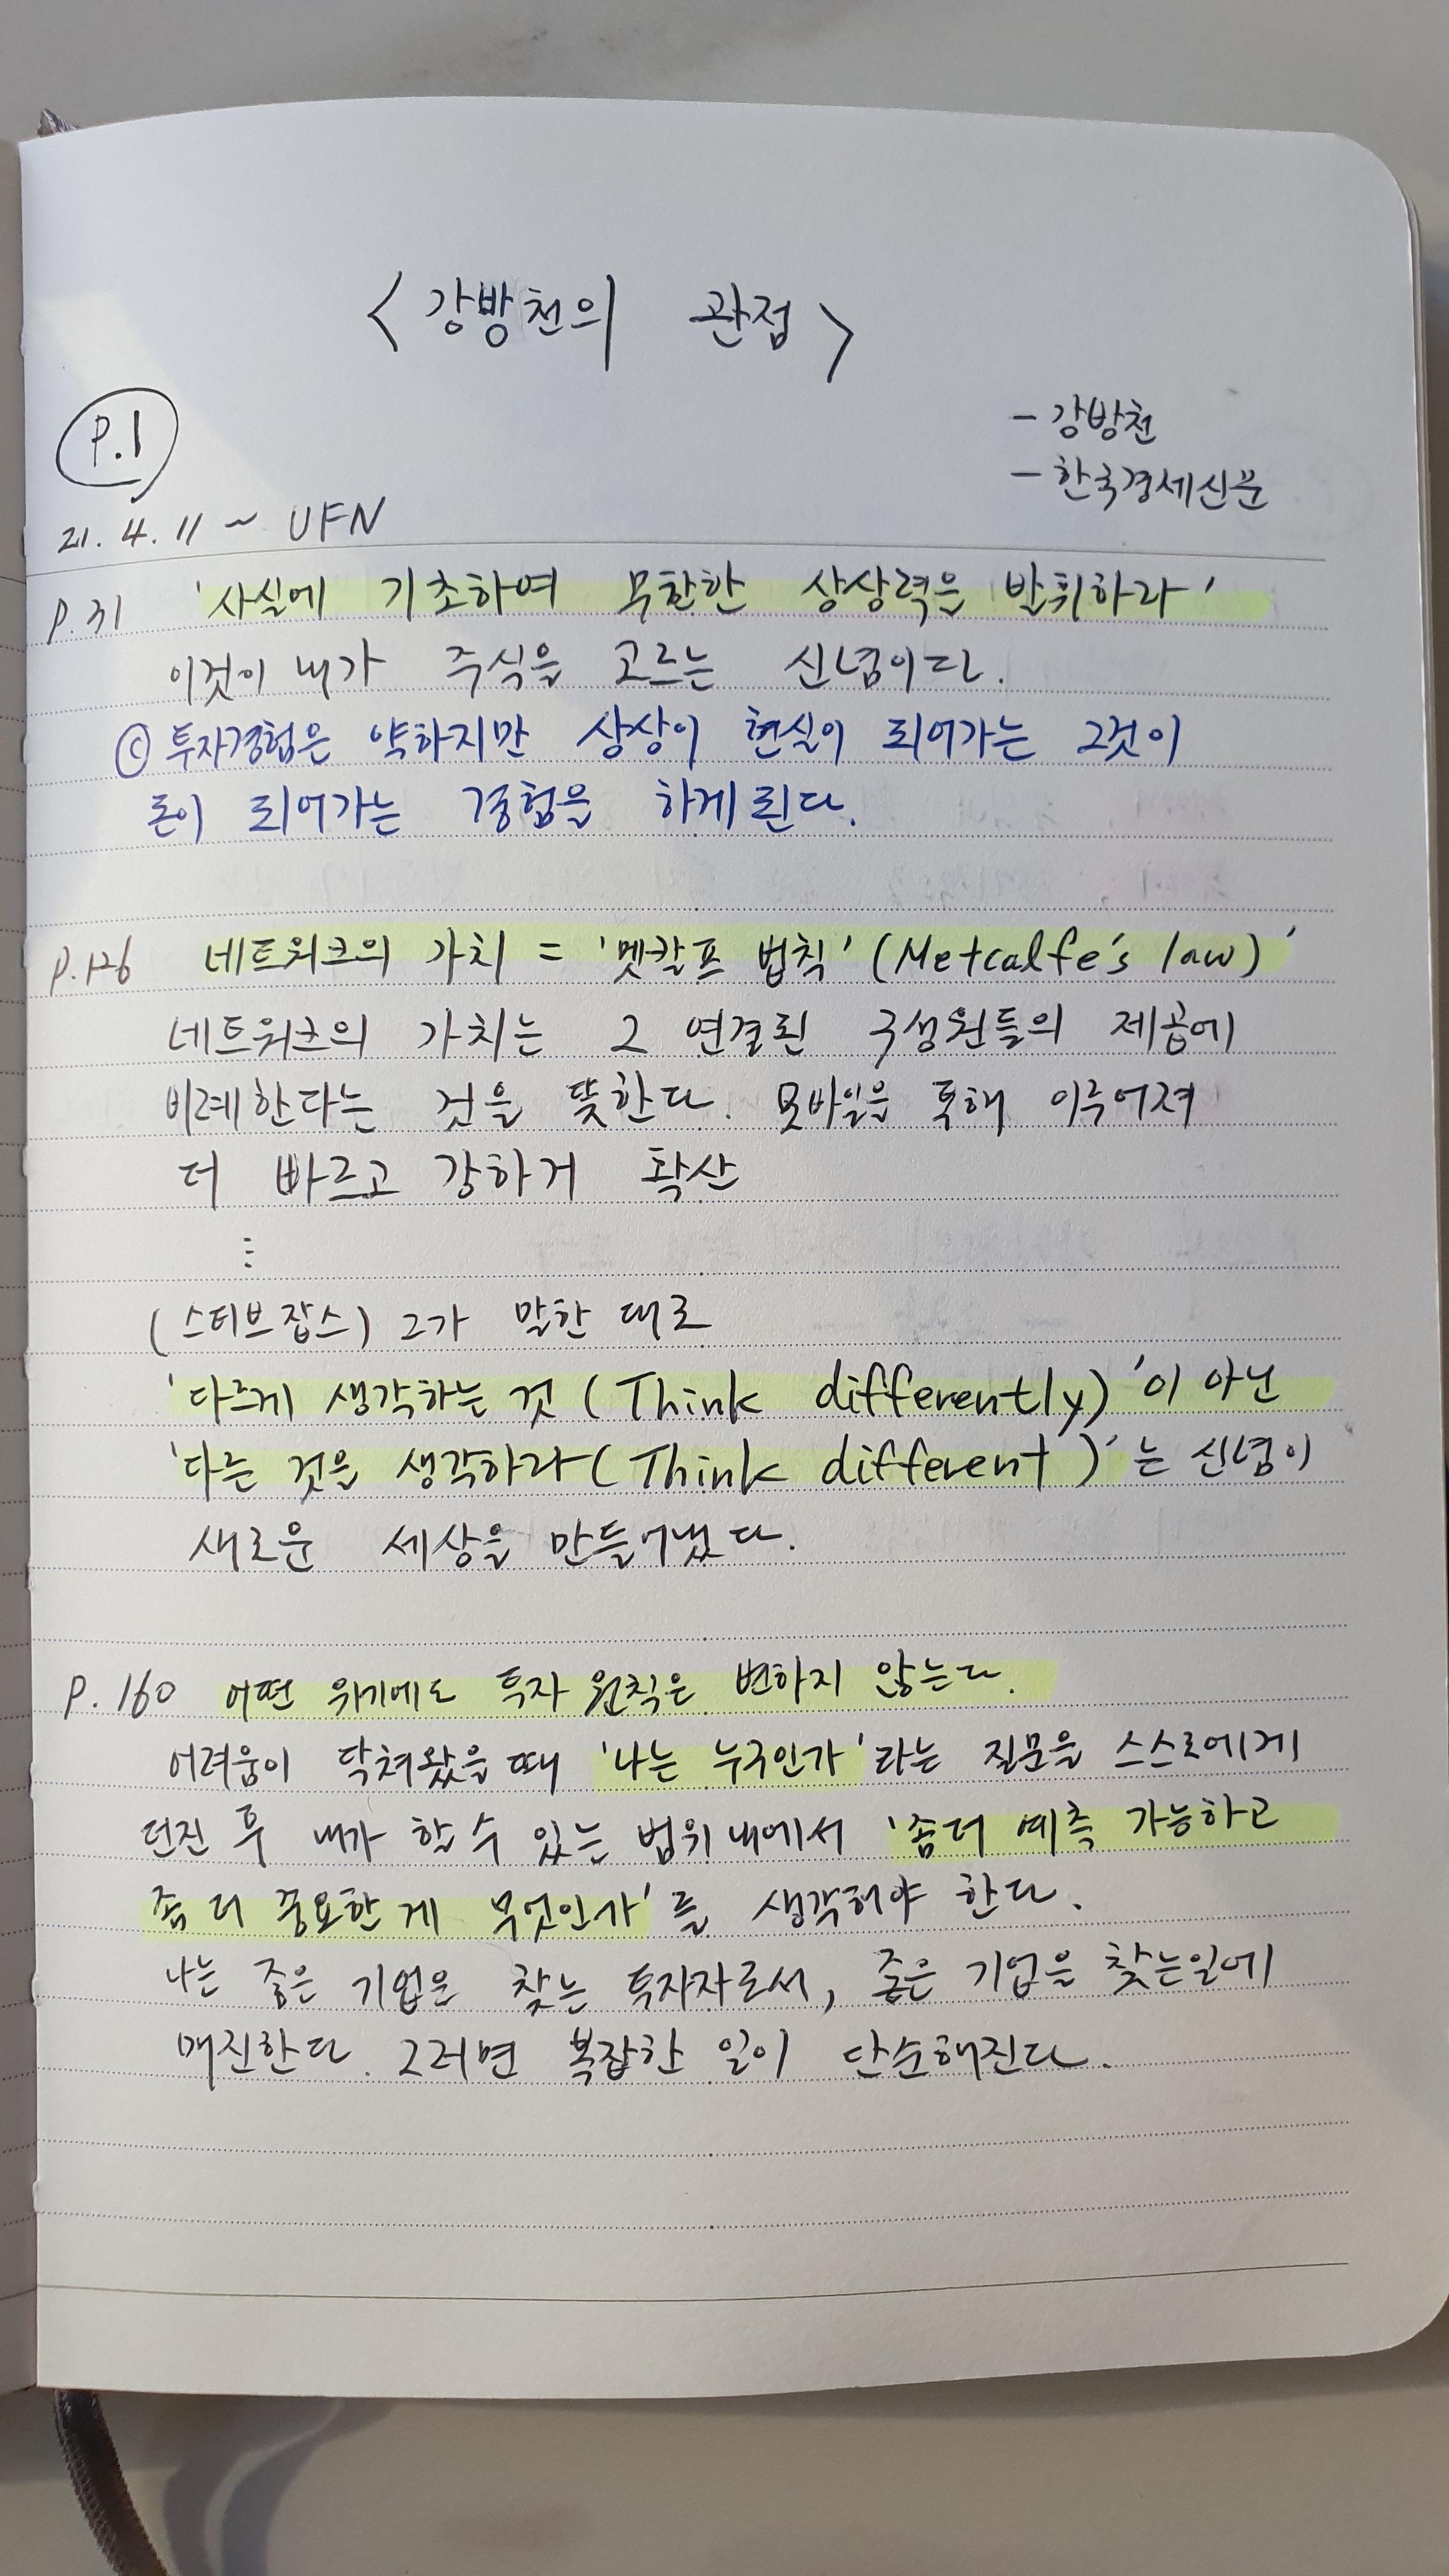 <강방천의 관점>
P.1
- 강방천
- 한국경제신문
21. 4. 11 ~ UFN
P.31 '사실에 기초하여 무한한 상상력을 발휘하라'
이것이 내가 주식을 고르는 신념이다.
ⓒ 투자경험은 약하지만 상상이 현실이 되어가는 그것이
돈이 되어가는 경험을 하게 된다.
P.126 네트워크의 가치 = '멧칼프 법칙' (Metcalfe's law)'
네트워크의 가치는 그 연결된 구성원들의 제곱에
비례한다는 것을 뜻한다. 모바일을 통해 이루어져
더 빠르고 강하게 확산
⋮
(스티브잡스) 그가 말한 대로
'다르게 생각하는 것 (Think differently)'이 아닌
'다른 것을 생각하라 (Think different)'는 신념이
새로운 세상을 만들어냈다.
P.160 어떤 위기에도 투자 원칙은 변하지 않는다.
어려움이 닥쳐왔을 때 '나는 누구인가'라는 질문을 스스로에게
던진 후 내가 할 수 있는 범위 내에서 '좀 더 예측 가능하고
좀 더 중요한 게 무엇인가'를 생각해야 한다.
나는 좋은 기업을 찾는 투자자로서, 좋은 기업을 찾는일에
매진한다. 그러면 복잡한 일이 단순해진다.